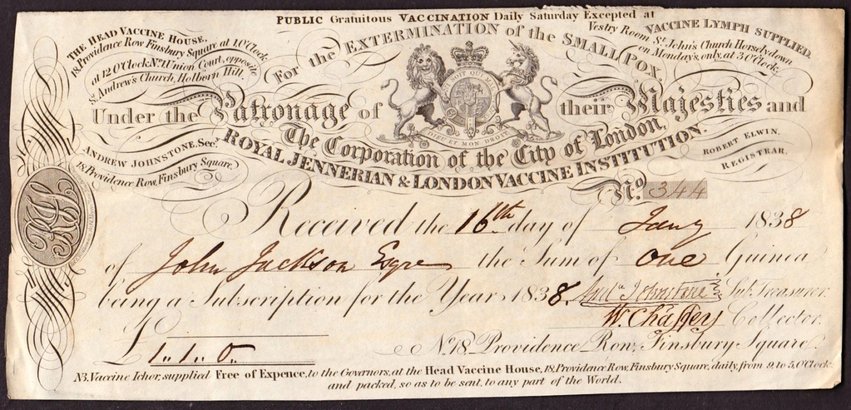 PUBLIC Gratuitous VACCINATION Daily Saturday Excepted at
THE HEAD VACCINE HOUSE,
18 Providence Row Finsbury Square at 10'Clock
at 12 O'Clock No. 1 Union Court, opposite
St. Andrew's Church, Holborn Hill.
VACCINE LYMPH SUPPLIED.
Vestry Room St. John's Church Horselydown
on Monday's, only, at 3 O'Clock.
For the EXTERMINATION of the SMALL POX,
HONI SOIT QUI MAL Y PENSE
DIEU ET MON DROIT
Under the Patronage of their Majesties and
The Corporation of the City of London,
ROYAL JENNERIAN & LONDON VACCINE INSTITUTION.
ANDREW JOHNSTONE, Secy.
18 Providence Row, Finsbury Square.
ROBERT ELWIN,
REGISTRAR.
No. 344
Received the 16th day of Jany 1838
of John Jackson Esqre the Sum of one Guinea
being a Subscription for the Year 1838 Andw Johnstone Sub. Treasurer.
W. Chaffey Collector.
£ 1.. 1.. 0..
No. 18 Providence Row, Finsbury Square.
NB. Vaccine Ichor, supplied Free of Expence, to the Governors, at the Head Vaccine House, 18, Providence Row, Finsbury Square, daily, from 9, to 5, O'Clock:
and packed, so as to be sent, to any part of the World.